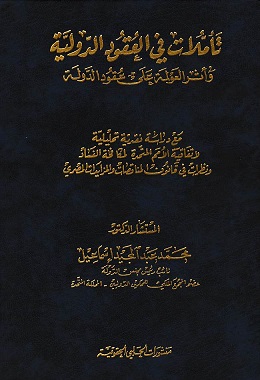 تأملات في العقود الدولية
وأثر العولمة على عقود الدولة
مع دراسة نقدية تحليلية
لاتفاقية الأمم المتحدة لمكافحة الفساد
ونظرات في قانون المناقصات والمزايدات المصري
المستشار الدكتور
محمد عبد المجيد إسماعيل
نائب رئيس مجلس الدولة
عضو المجمع الملكي للمحكمين الدوليين - المملكة المتحدة
منشورات الحلبي الحقوقية